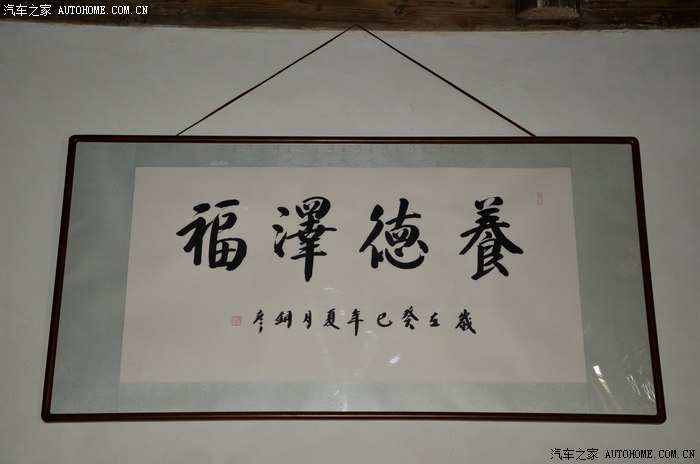 汽车之家 AUTOHOME.COM.CN
養德澤福
歲在癸巳年夏月
汽车之家 AUTOHOME.COM.CN